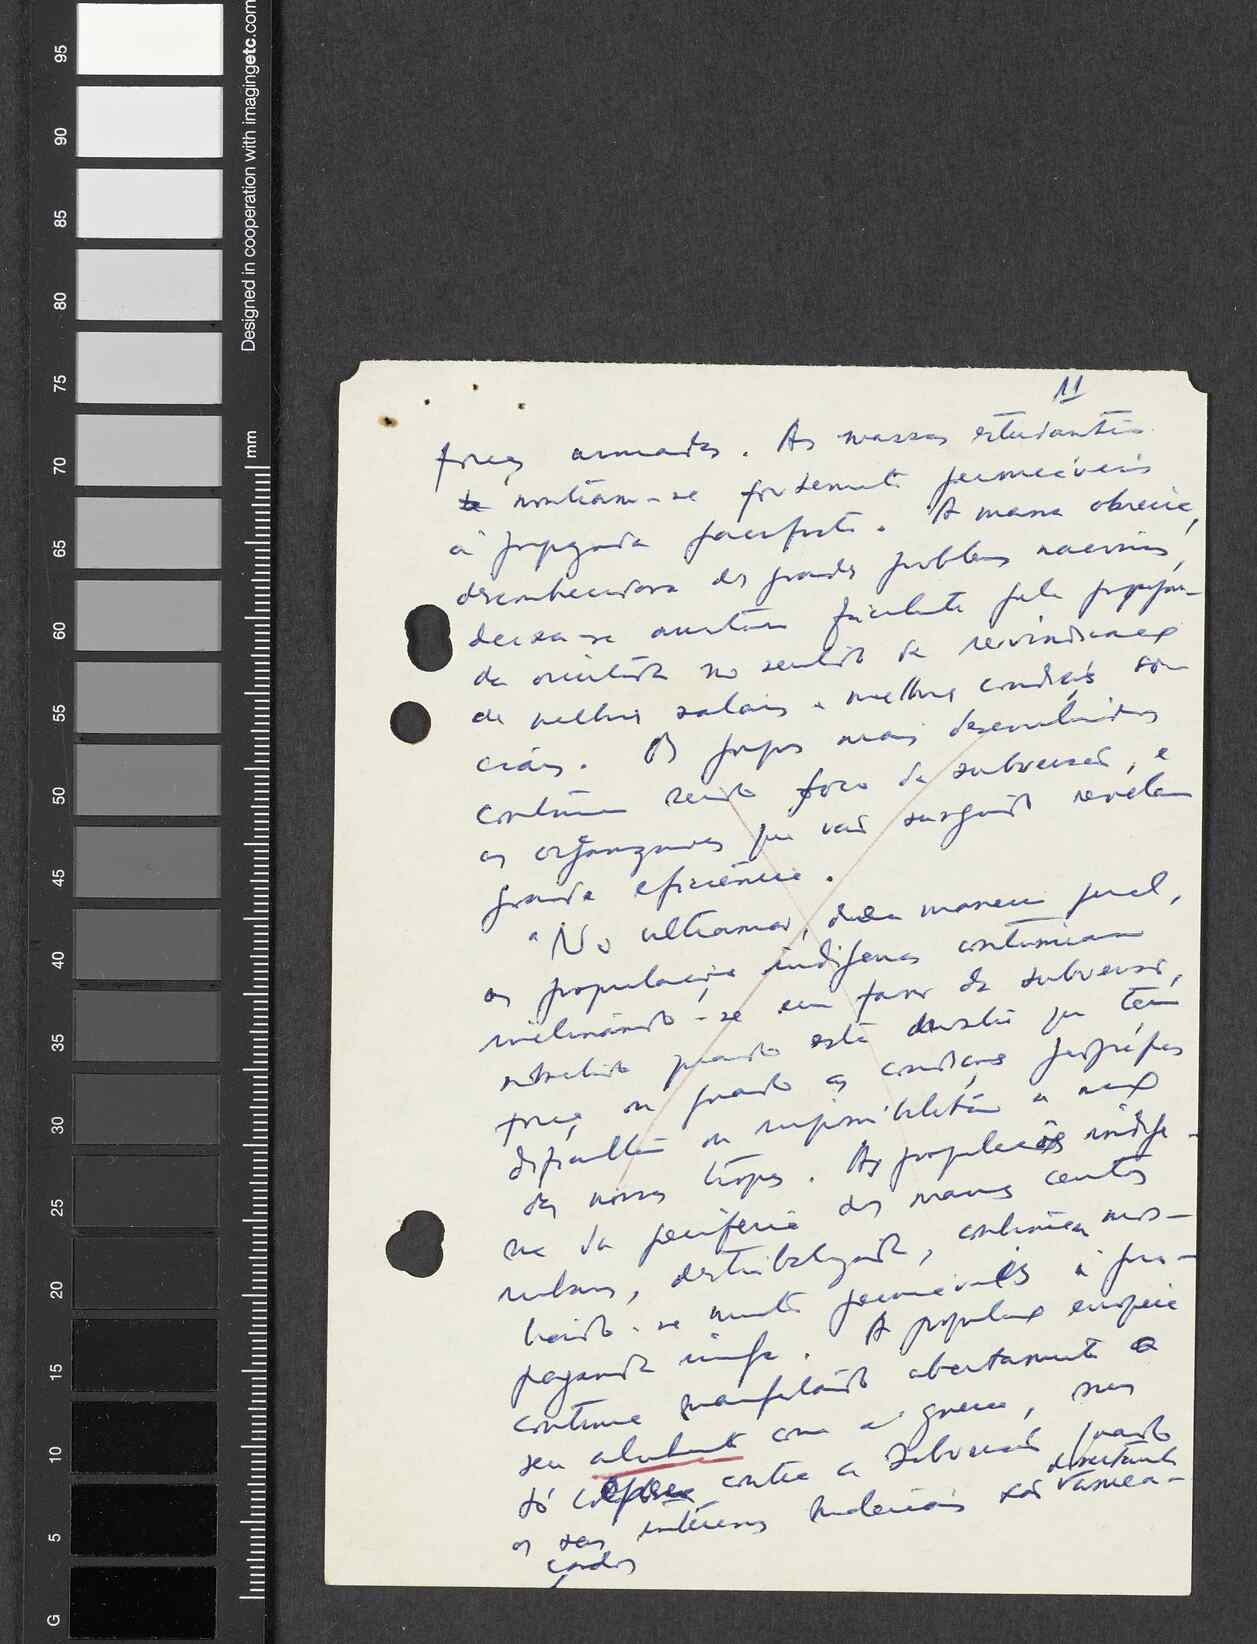 95
90
85
80
75
70
65
60
55
50
45
40
35
30
25
20
15
10
5
G
Designed in cooperation with imagingetc.com
mm
11
forças armadas. As massas estudantis
mostram-se fortemente permeáveis
à propaganda pacifista. A massa obreira,
desconhecedora dos grandes problemas nacionais,
deixa-se facilmente pela propagan-
da orientada no sentido de reivindicações
de melhores salários e melhores condições so-
ciais. Os grupos mais desenvolvidos
continuam sendo foco de subversão, e
as organizações que vão surgindo revelam
grande eficiência.
"No ultramar, duma maneira geral,
as populações indígenas continuam
inclinando-se em favor da subversão,
sobretudo quando esta demonstra que tem
força, ou quando as condições geográficas
dificultam ou impossibilitam a acção
das nossas tropas. As populações indíge-
nas da periferia dos maiores centros
urbanos, destribalizadas, continuam mos-
trando-se muito permeáveis à pro-
paganda inimiga. A população europeia
continua manifestando abertamente o
seu com a guerra, mas
só contra a subversão quando
os seus interesses materiais são directamente
ameaçados